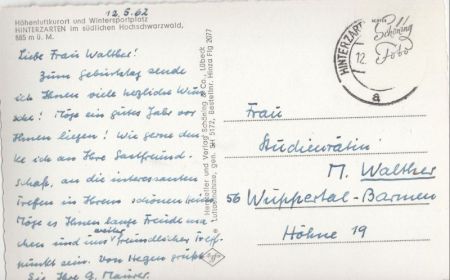 12.5.62
Höhenluftkurort und Wintersportplatz
HINTERZARTEN im südlichen Hochschwarzwald,
885 m ü. M.
Liebe Frau Walther!
Zum Geburtstag sende
ich Ihnen viele herzliche Wün
sche! Möge ein gutes Jahr vor
Ihnen liegen! Wie gerne den
ke ich an Ihre Gastfreund
schaft, an die interessanten
Treffen in Ihrem schönen Heim.
Möge es Ihnen lange Freude ma
chen und uns weiter freundlicher Treff
punkt sein. Von Herzen grüßt
Sie Ihre G. Maurer.
Hersteller und Verlag Schöning & Co., Lübeck
Luftaufnahme, gen. SH 5172, Bestellnr. Hinza Flg 2077
HINTERZARTEN
12.
a
Schöning
Foto
Frau
Studienrätin
M. Walther
56 Wuppertal-Barmen
Höhne 19